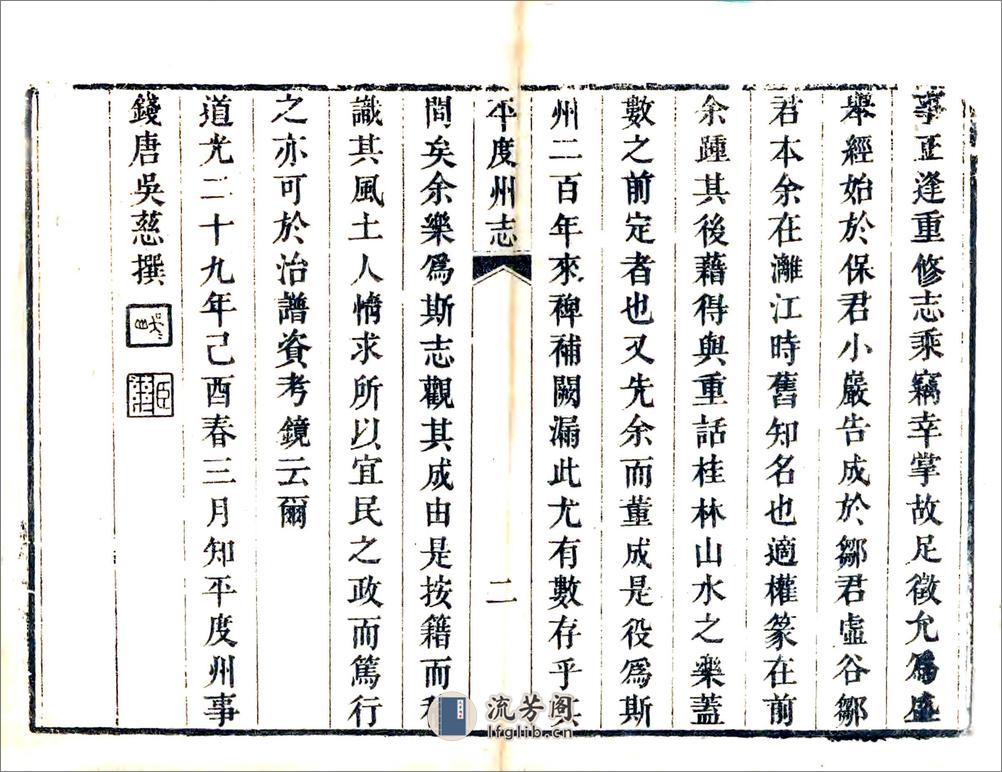 事正逢重修志乘竊幸掌故足徵允爲盛
舉經始於保君小嚴告成於鄒君虛谷鄒
君本余在灕江時舊知名也適權篆在前
余踵其後藉得與重話桂林山水之樂蓋
數之前定者也又先余而董成是役爲斯
州二百年來裨補闕漏此尤有數存乎其
平度州志
二
間矣余樂爲斯志觀其成由是按籍而
識其風土人情求所以宜民之政而篤行
之亦可於治譜資考鏡云爾
道光二十九年己酉春三月知平度州事
錢唐吳慈撰
流芳阁
lfglib.cn